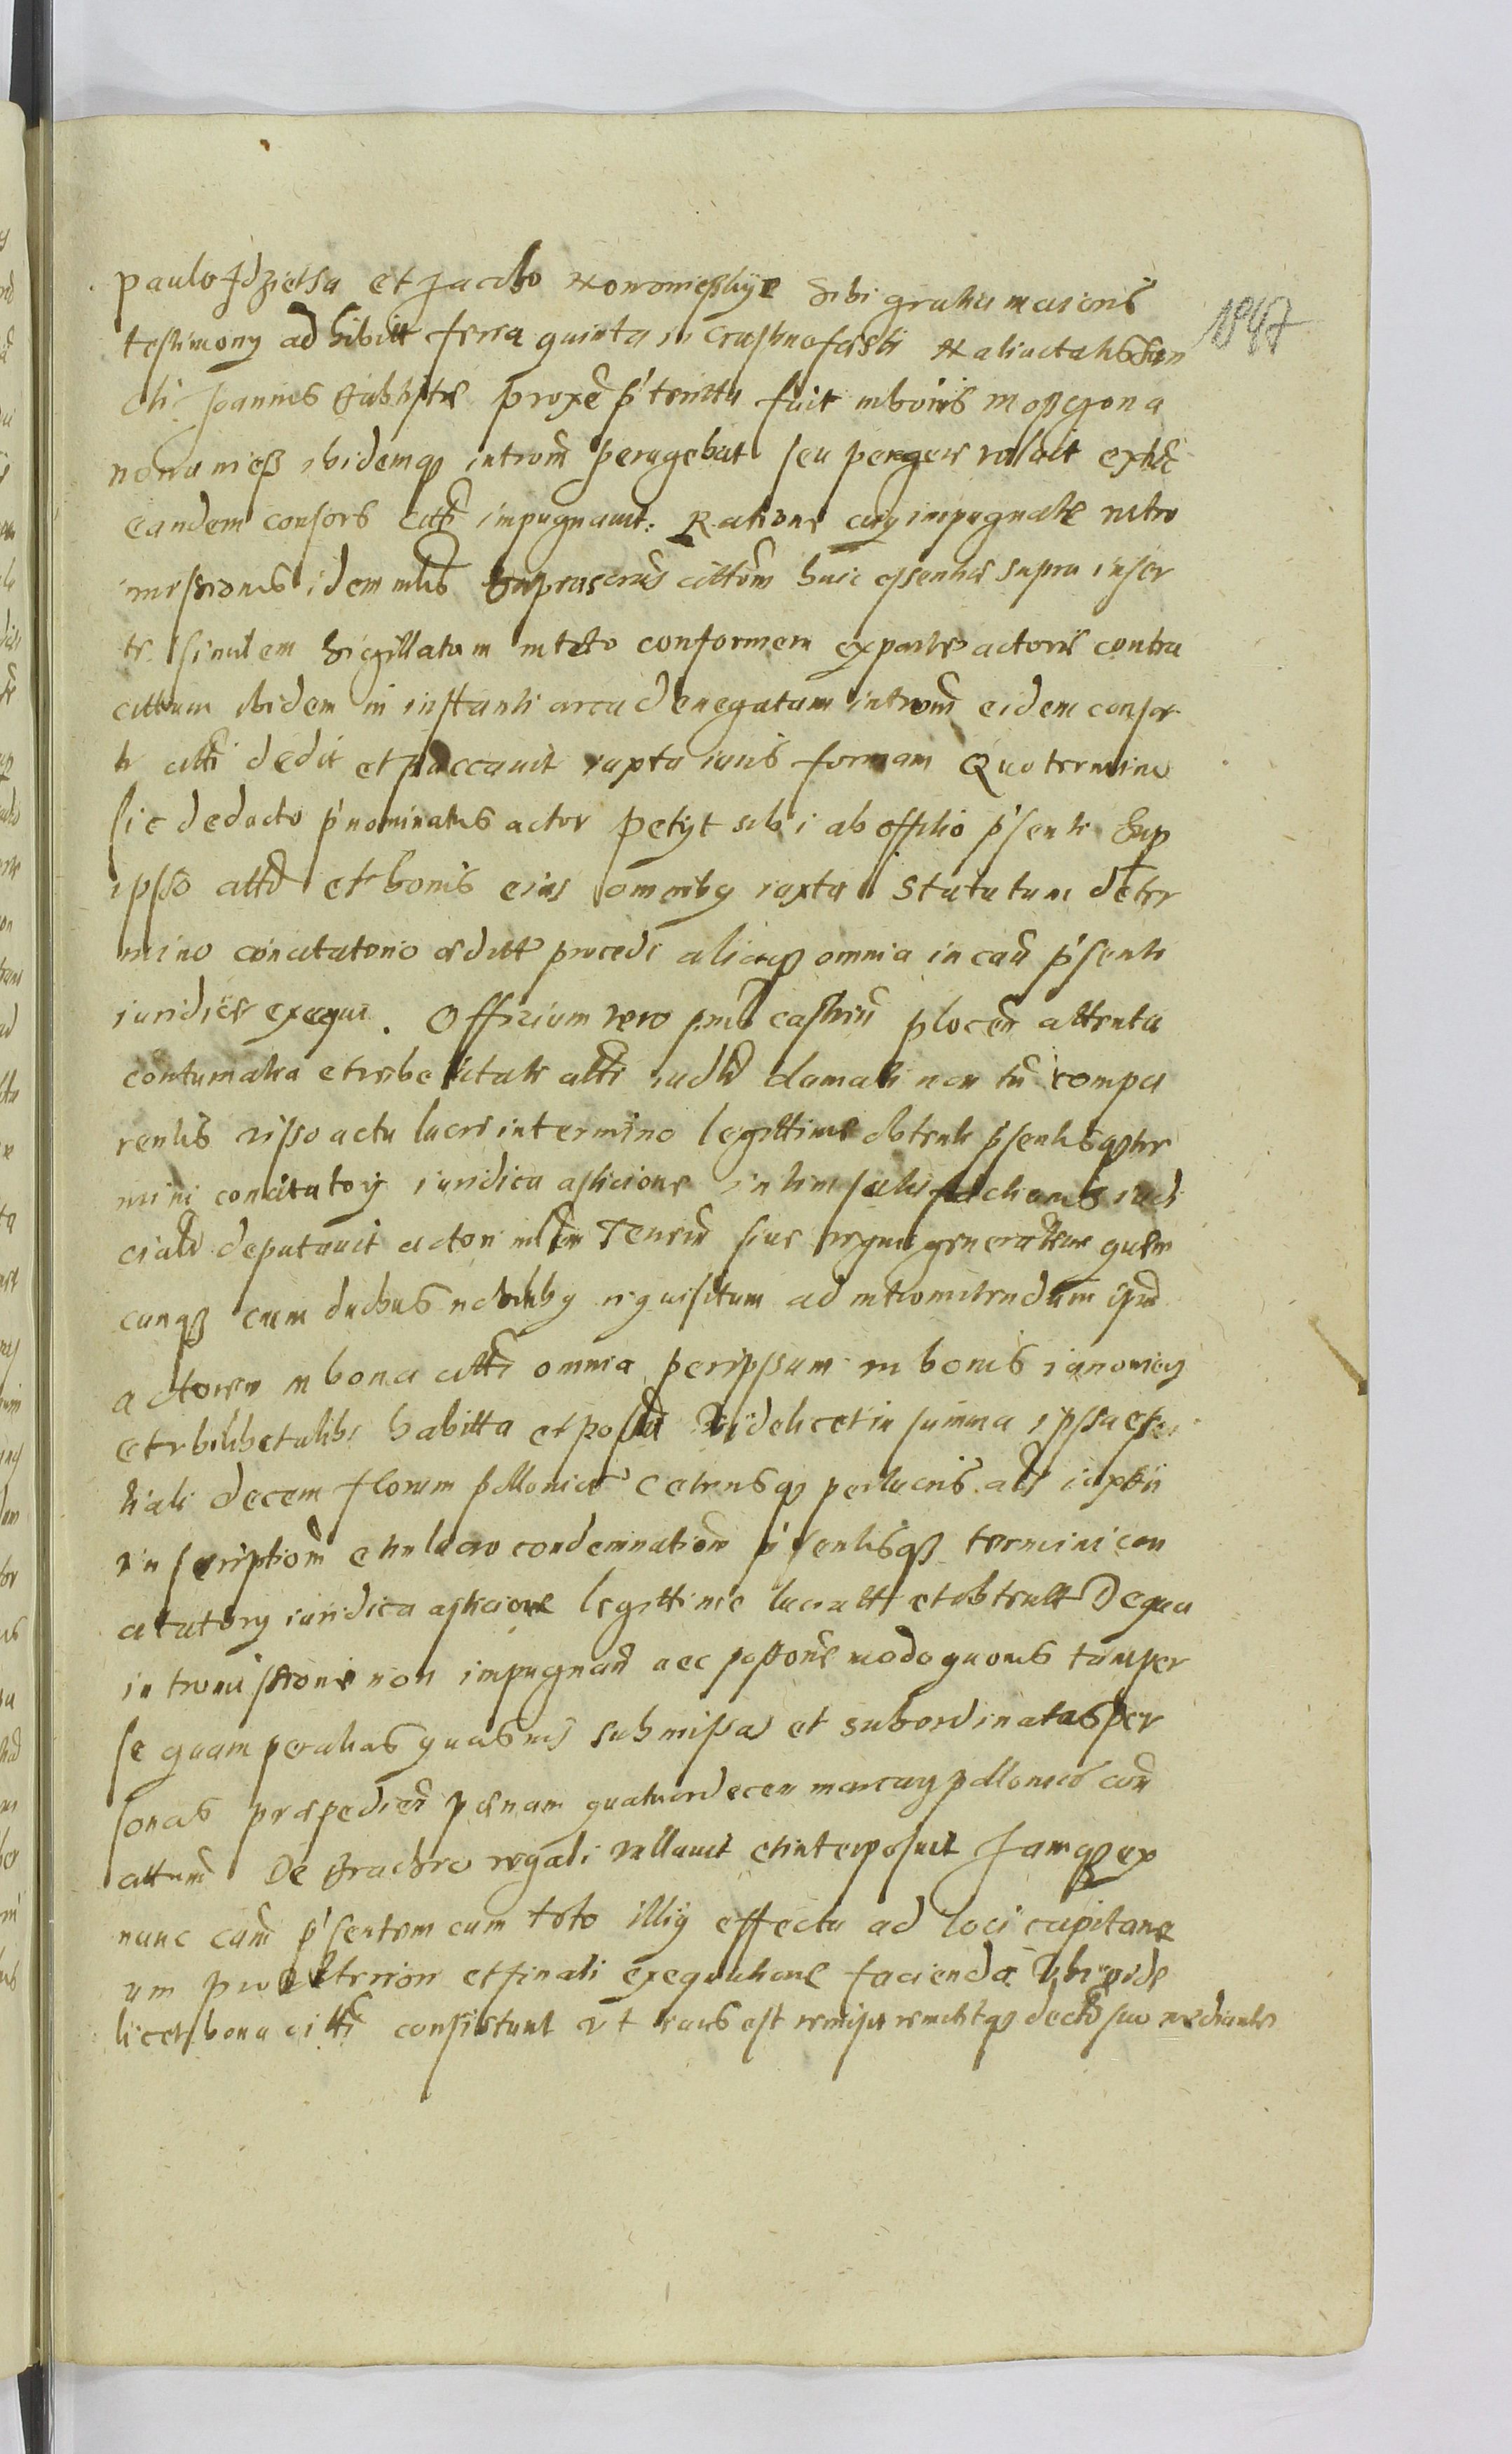 paulo Idzielsa et Jacobo Nonomieskye sibi gratia maioris
testimony adhibitt feria quinta in crastino festi Nativitatis San
cti Joannis Babtiste proxe p'teritta fuit in bonis moszczona
nonamiesz ibidemq introm peragebat seu peragere voluit ex tuc
eandem consors citti impugnauit. Ratione cuiy impugnate intro
missionis idem mlis suprascrus cittom huic essentiae supra inser
te similem sigillatam in toto conformem ex parte actoris contra
cittum ibidem in instanti circa denegatam introm eidem consor
ti citti dedit et placcauit iuxta iuris formam Quo termino
sic deducto p'nominatus actor petyt sibi ab officio p'senti sup
ipsso citto et bonis eius omniby iuxta Statutum de ter
mino concitatorio editt procedi aliaqz omnia in cau p'senti
iuridice exequi. Officium vero pns castren plocen attenta
contumatia et rebellitate citti iudli clamati non tn compa
rentis visso actu lucri in termino legittime obtenti p'sentisqz ter
mini concitatory iuridica asticione in vim satisfactionis iudi
cialis deputauit actori mlem Tensem siue regni generalem quem
cunqz cum duobus nobiliby requisitum ad intromittendum ipm
actorem in bona citti omnia per ipssum in bonis ianomicy
et ubilibet alibi habitta et possa videlicet in summa ipssa essen
tiali decem florum pollonica ceterisqz per lucris als iuxta
inscriptiom et in lucro condemnatiom p'sentisqz termini con
citatory iuridica asticione legittime lucratt et obtentt De qua
intromissione non impugnan nec passione modo quouis tam per
se quam per alias quasuis submissas et subordinatas per
sonas praepedien paenam quatuordecem marcary pollonica con
cittum De brachio regali vallauit et interposuit Jamqz ex
nunc cam p'sentem cum toto illiy effectu ad loci capitane
um pro ulteriori et finali exequutione facienda Vbi vide
licet bona citti consistunt vt iuris est remisit remittitqz decto suo mediante
1047